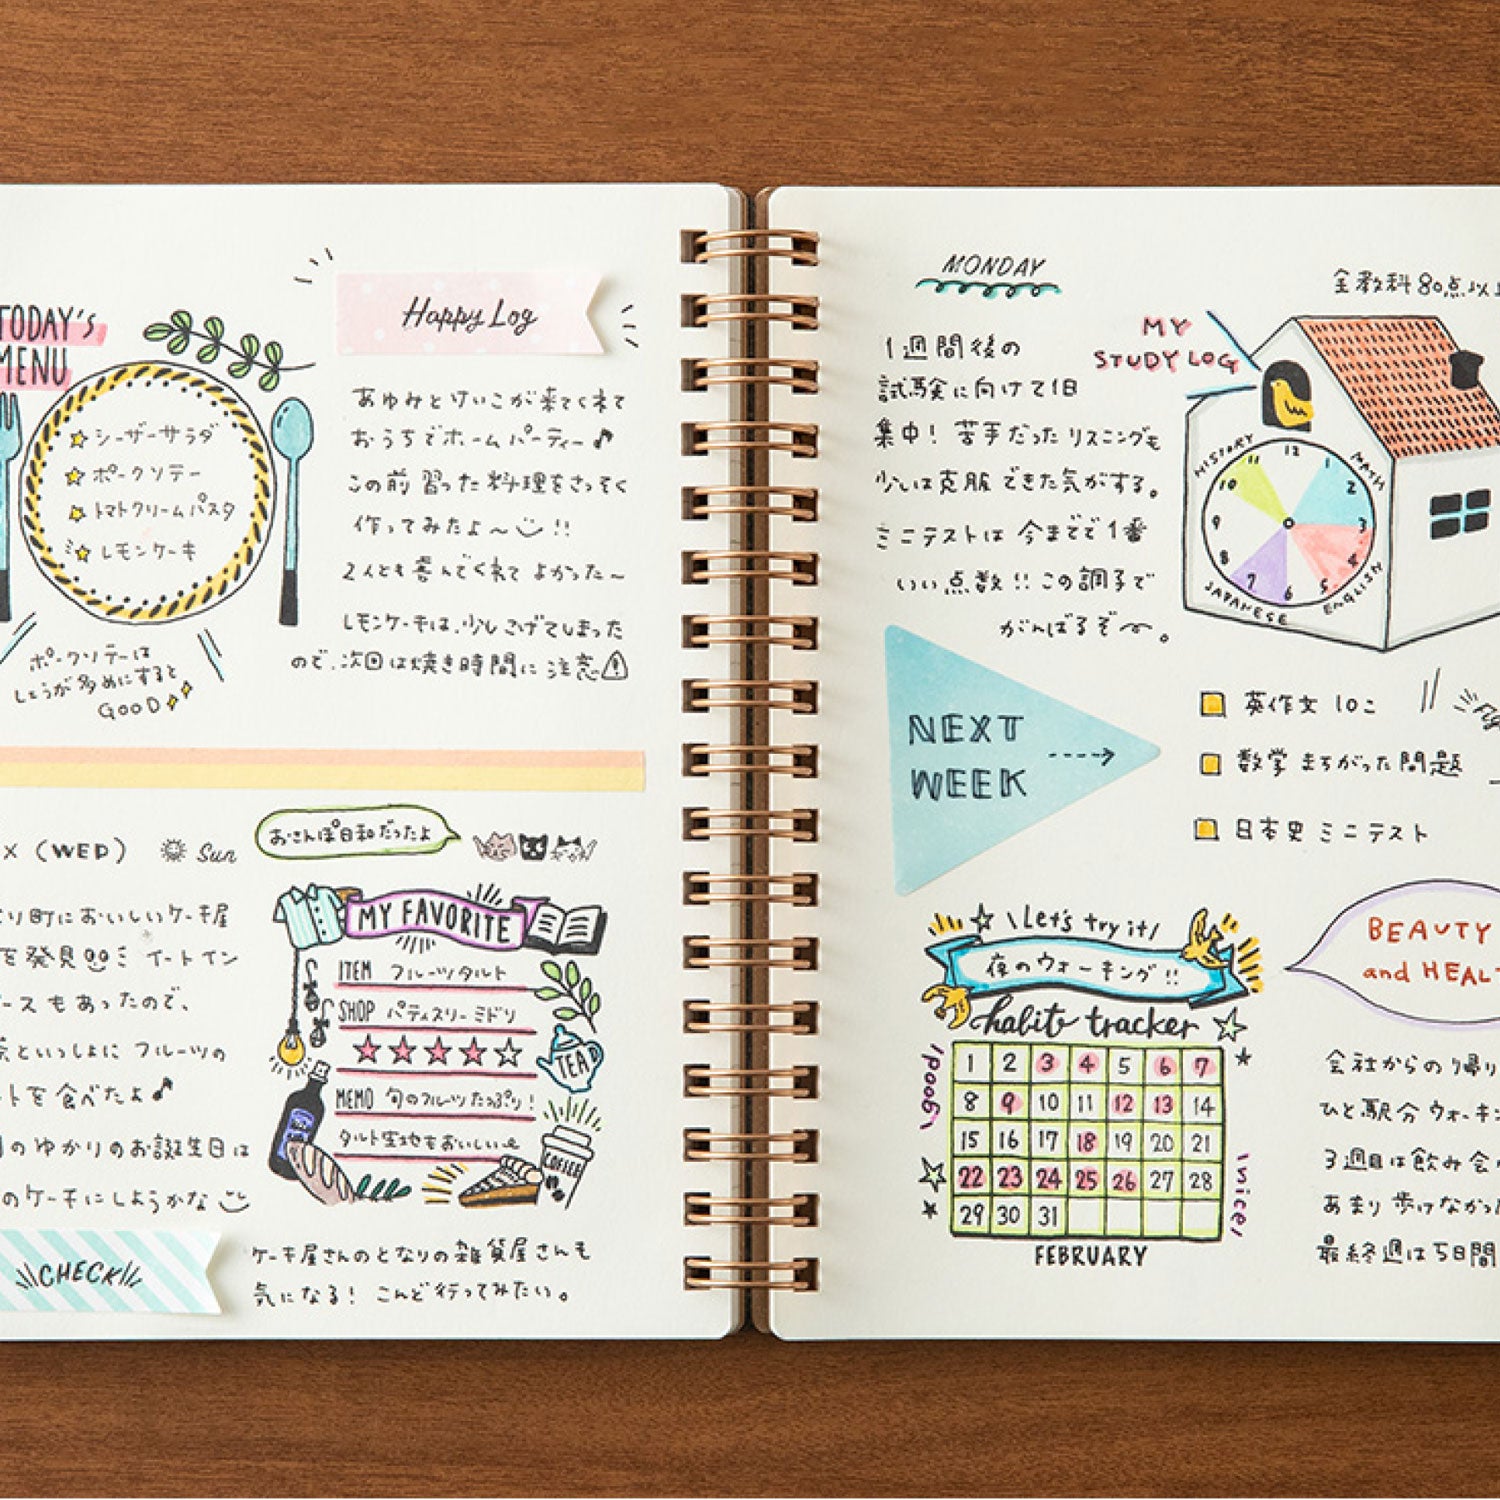 TODAY's
MENU
シーザーサラダ
ポークソテー
トマトクリームパスタ
レモンケーキ
ポークソテーは
しょうが多めにすると
GOOD
Happy Log
あゆみとけいこが来てくれて
おうちでホームパーティー♪
この前習った料理をさっそく
作ってみたよ〜!!
2人とも喜んでくれてよかった〜
レモンケーキは、少しこげてしまった
ので、次回は焼き時間に注意
(WED) Sun
おさんぽ日和だったよ
町においしいケーキ屋
を発見 イートイン
ースもあったので、
といっしょにフルーツの
トを食べたよ♪
のゆかりのお誕生日は
のケーキにしようかな
MY FAVORITE
ITEM フルーツタルト
SHOP パティスリーミドリ
★★★★☆
TEA
MEMO 旬のフルーツたっぷり!
タルト生地もおいしい
COFFEE
CHECK
ケーキ屋さんのとなりの雑貨屋さんも
気になる! こんど行ってみたい。
MONDAY
1週間後の
試験に向けて1日
集中! 苦手だったリスニングも
少しは克服できた気がする。
ミニテストは今までで1番
いい点数!! この調子で
がんばるぞ〜。
MY
STUDY LOG
全教科80点以
HISTORY
MATH
ENGLISH
JAPANESE
12 1 2 3 4 5 6 7 8 9 10 11
NEXT
WEEK
英作文 10こ
数学 まちがった問題
日本史 ミニテスト
\Let's try it/
夜のウォーキング!!
habit tracker
/good\
1 2 3 4 5 6 7
8 9 10 11 12 13 14
15 16 17 18 19 20 21
22 23 24 25 26 27 28
29 30 31
\nice/
FEBRUARY
BEAUTY
and HEALT
会社からの帰り
ひと駅分ウォーキ
3週目は飲み会
あまり歩けなかっ
最終週は5日間